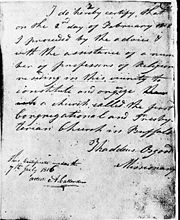 I do hereby certify, that
on the 2d day of February 181
I proceeded by the advice &
with the assistance of a num
ber of professors of Religion
residing in this county to
constitute and organize
a church called the first
Congregational and Presby
terian Church in Buffalo
Thaddeus Osgood
Missionary
This
7th July 1816